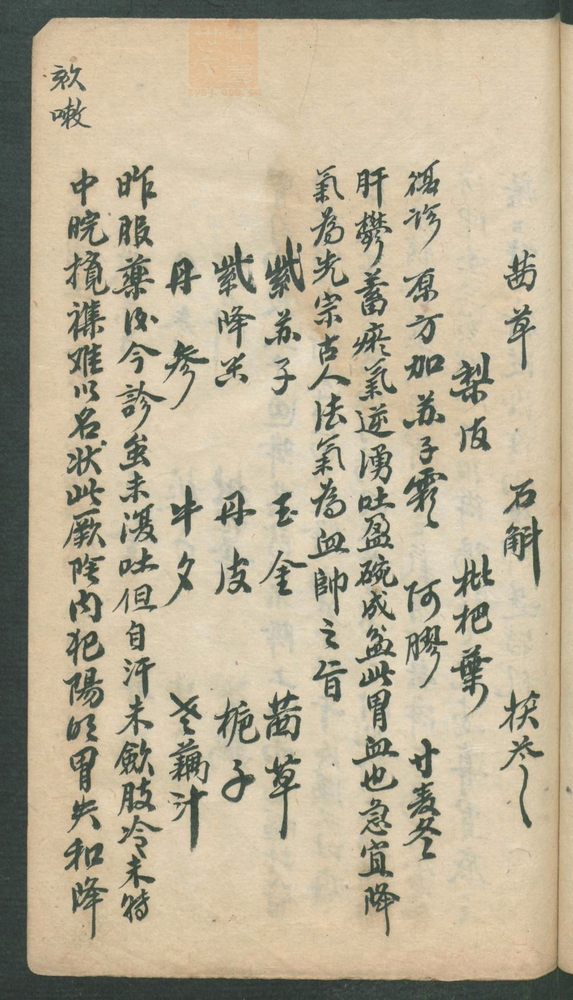 欬嗽
茜草 石斛
梨皮 枇杷葉
復診 原方加苏子霜 阿膠 麦冬
肝鬱蓄瘀氣逆湧吐盈碗成盆此胃血也急宜降
氣為先宗古人法氣為血帥之旨
紫苏子 玉金 茜草
紫降香 丹皮 栀子
丹参 牛夕 老藕汁
昨服藥后今診虽未復吐但自汗未歛肢冷未
中脘攪襍难以名状此厥陰内犯陽明胃失和降